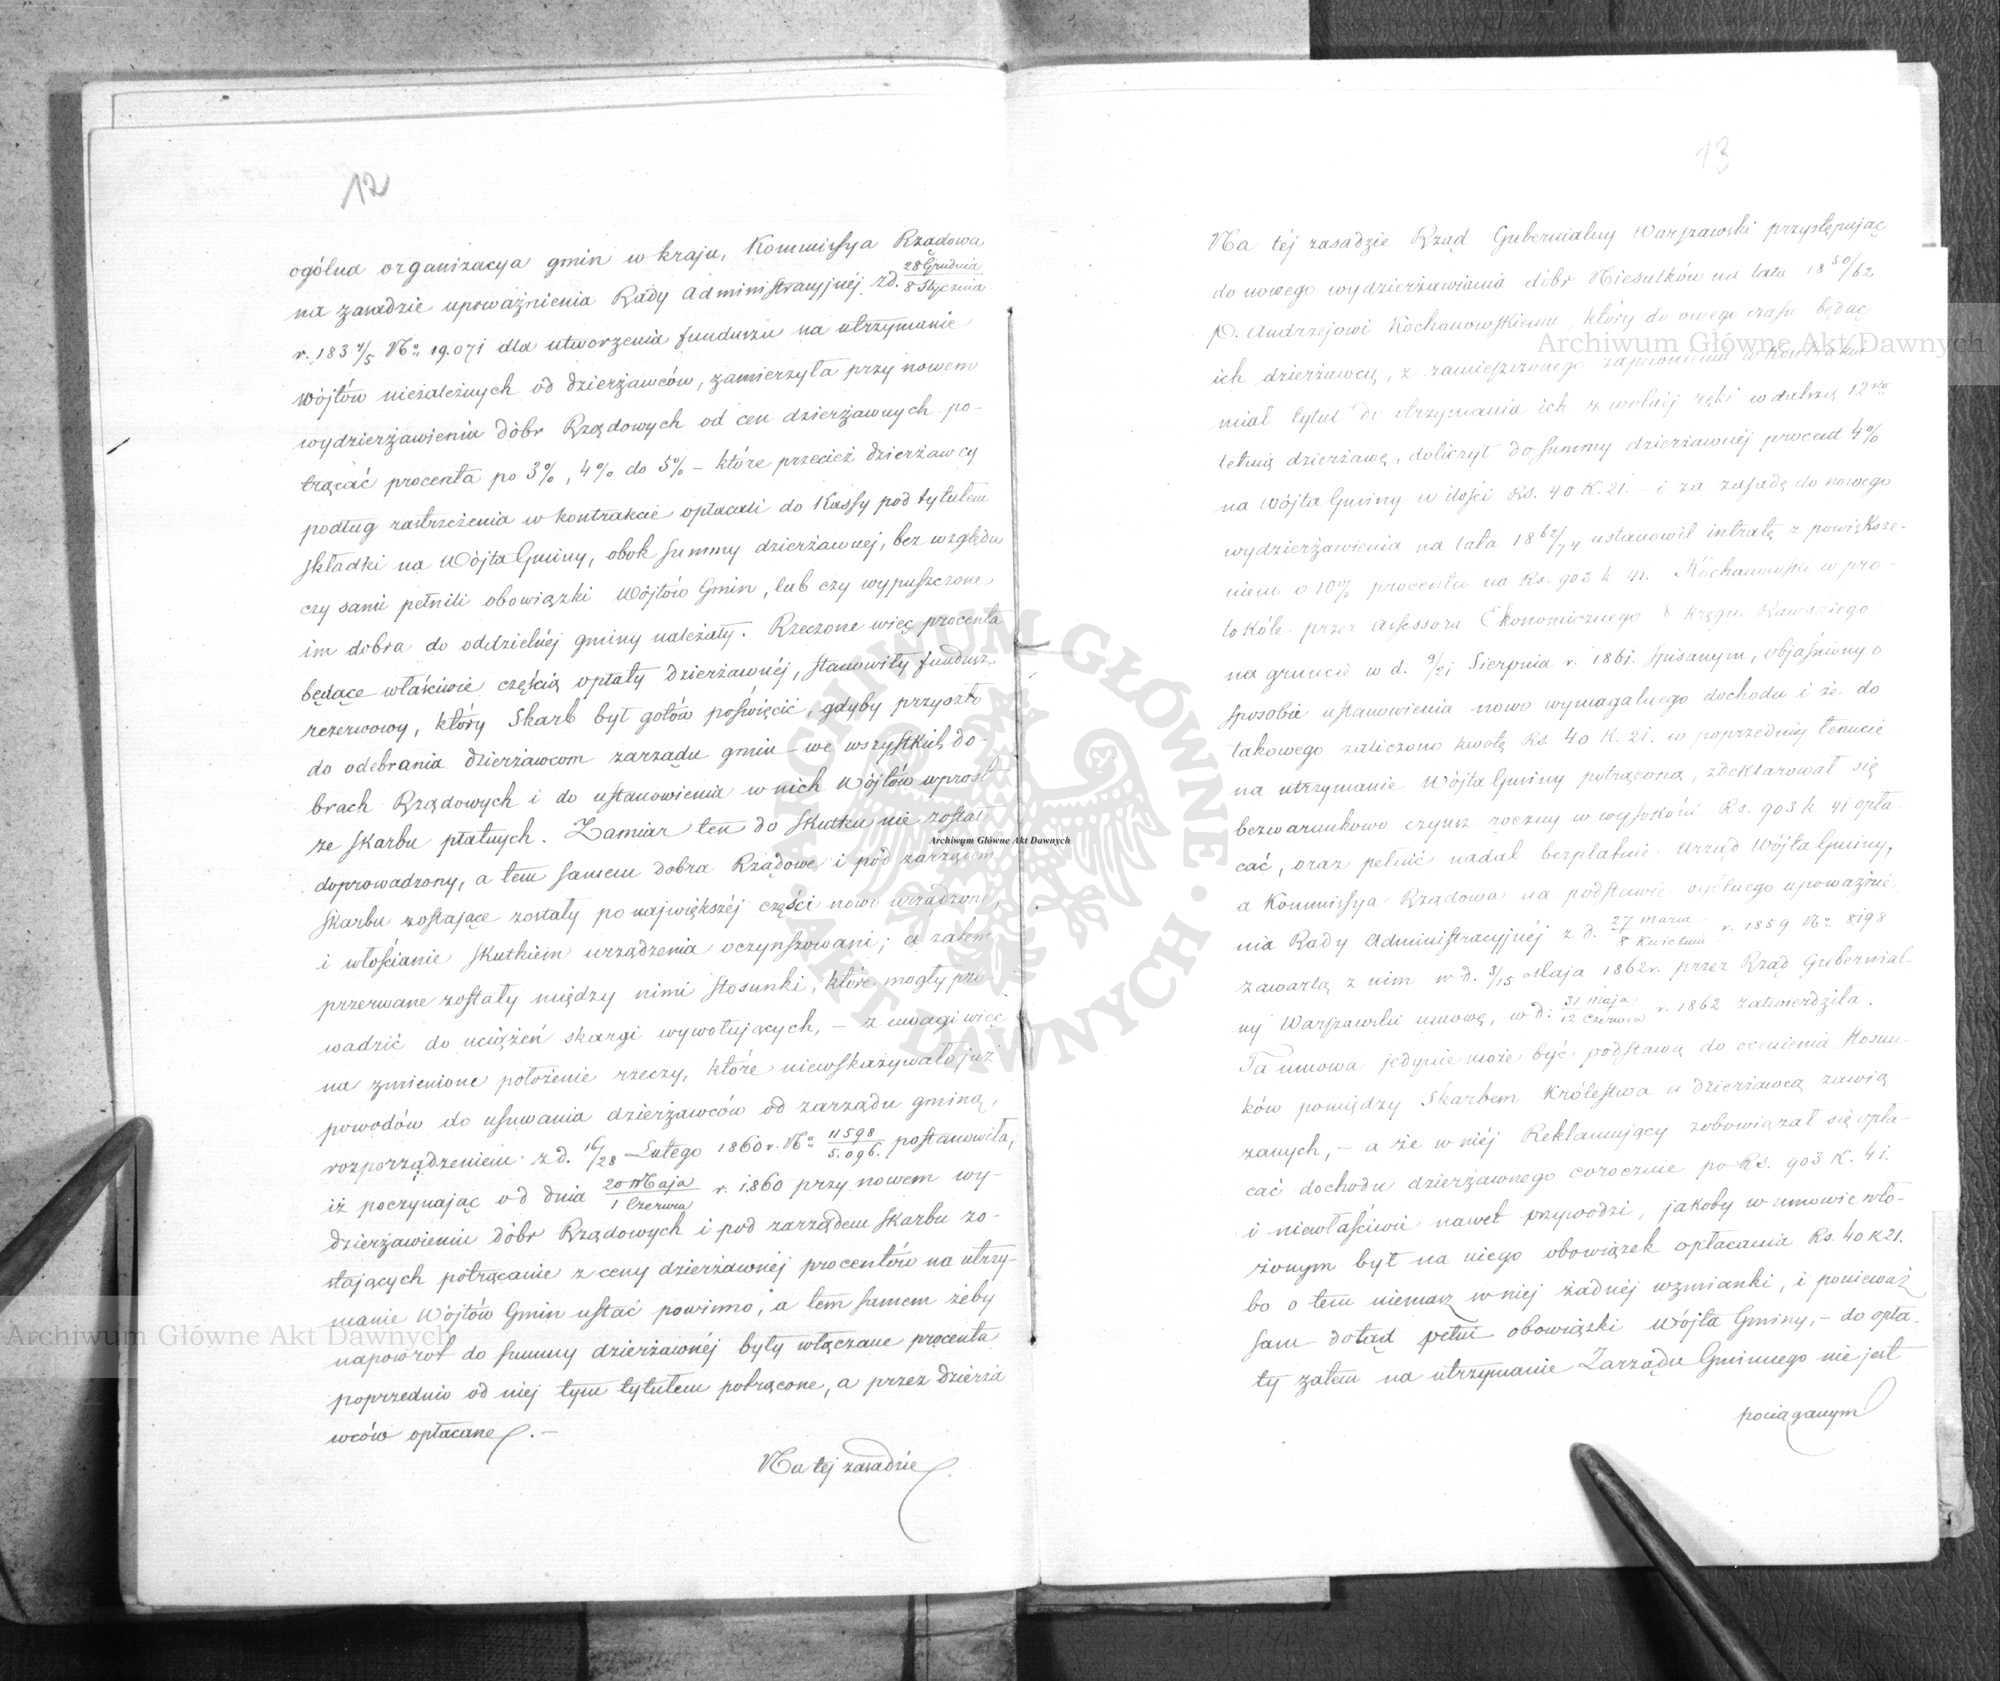 12
ogólna organizacya gmin w kraju, Kommissya Rządowa
na zasadzie upoważnienia Rady Administracyjnéj z d. 28 Grudnia / 8 Stycznia
r. 183 4/5 No. 19.071 dla utworzenia funduszu na utrzymanie
Wójtów niezależnych od dzierżawców, zamierzyła przy nowem
wydzierżawieniu dóbr Rządowych od cen dzierżawnych po-
trącać procenta po 3%, 4% do 5% – które przecież dzierżawcy
podług zastrzeżenia w kontrakcie opłacali do Kassy pod tytułem
składki na Wójta Gminy, obok summy dzierżawnej, bez względu
czy sami pełnili obowiązki Wójtów Gmin, lub czy wypuszczone
im dobra do oddzielnéj gminy należały. Rzeczone więc procenta
będące właściwie częścią opłaty dzierżawnéj, stanowiły fundusz
rezerwowy, który Skarb był gotów poświęcić, gdyby przyszło
do odebrania dzierżawcom zarządu gmin we wszystkich do-
brach Rządowych i do ustanowienia w nich Wójtów wprost
ze skarbu płatnych. Zamiar ten do skutku nie został
doprowadzony, a tem samem dobra Rządowe i pod zarządem
skarbu zostające zostały po największéj części nowo urządzone,
i włościanie skutkiem urządzenia oczynszowani; a zatem
przerwane zostały między nimi stosunki, które mogły pro
wadzić do uciążeń skargi wywołujących, – z uwagi więc
na zmienione położenie rzeczy, które niewskazywało już
powodów do usuwania dzierżawców od zarządu gminą,
rozporządzeniem z d. 16/28 Lutego 1860 r. No. 11598 / 5.096. postanowiła,
iż poczynając od dnia 20 Maja / 1 Czerwca r. 1860 przy nowem wy-
dzierżawieniu dóbr Rządowych i pod zarządem skarbu zo-
stających potrącanie z ceny dzierżawnéj procentów na utrzy-
manie Wójtów Gmin ustać powinno, a tem samem żeby
napowrót do summy dzierżawnéj były włączane procenta
poprzednio od niej tym tytułem potrącone, a przez dzierża
wców opłacane. –
Na tej zasadzie
13
Na téj zasadzie Rząd Gubernialny Warszawski przystępując
do nowego wydzierżawienia dóbr Niesułków na lata 18 50/62
P. Andrzejowi Kochanowskiemu, który do owego czasu będąc
ich dzierżawcą, z zamieszczonego zapewnienia w Kontrakcie
miał tytuł do utrzymania ich z wolnéj ręki w dalszą 12sto
letnią dzierżawę, doliczył do summy dzierżawnéj procent 4%
na Wójta Gminy w ilości Rs. 40 K. 21. i za zasadę do nowego
wydzierżawienia na lata 18 62/74 ustanowił intratę z powiększe-
niem o 10% procentu na Rs. 903 k 41. Kochanowski w pro-
tokóle przez Assessora Ekonomicznego Okręgu Rawskiego
na gruncie w d. 9/21 Sierpnia r. 1861. spisanym, objaśniony o
sposobie ustanowienia nowo wymagalnego dochodu i że do
takowego zaliczono kwotę Rs. 40 K. 21. w poprzedniéj tenucie
na utrzymanie Wójta Gminy potrąconą, zdeklarował się
bezwarunkowo czynsz roczny w wysokości Rs. 903 k 41 opła-
cać, oraz pełnić nadal bezpłatnie Urząd Wójta Gminy,
a Kommissya Rządowa na podstawie ogólnego upoważnie
nia Rady Administracyjnéj z d. 27 Marca / 8 Kwietnia r. 1859 No. 8198
zawartą z nim w d. 3/15 Maja 1862 r. przez Rząd Gubernial
ny Warszawski umowę, w d. 31 Maja / 12 Czerwca r. 1862 zatwierdziła.
Ta umowa jedynie może być podstawą do ocenienia stosun-
ków pomiędzy Skarbem Królestwa a dzierżawcą zawią
zanych, – a że w niéj Reklamujący zobowiązał się opła-
cać dochodu dzierżawnego corocznie po Rs. 903 K. 41.
i niewłaściwie nawet przywodzi, jakoby w umowie wło-
żonym był na niego obowiązek opłacania Rs. 40 K 21.
bo o tem niemasz w niej żadnéj wzmianki, i ponieważ
sam dotąd pełni obowiązki Wójta Gminy, – do opła-
ty zatem na utrzymanie Zarządu Gminnego nie jest
pociąganym
Archiwum Główne Akt Dawnych
Archiwum Główne Akt Dawnych
Archiwum Główne Akt Dawnych
ARCHIWUM GŁÓWNE · AKT DAWNYCH ·